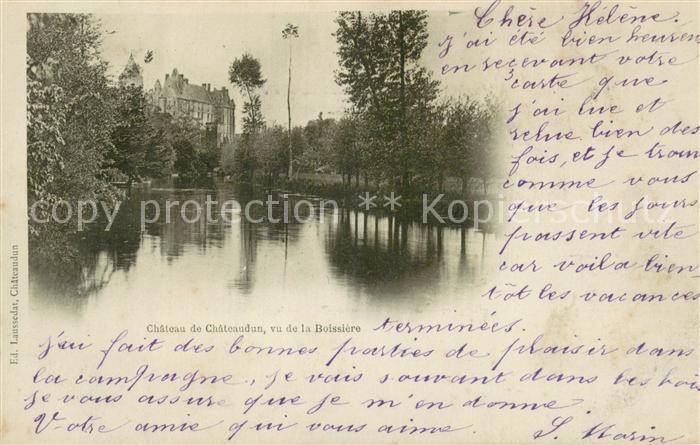 Chère Hélène.
j'ai été bien heureu
en recevant votre
carte que
j'ai lue et
relue bien des
fois, et je trouv
comme vous
que les jours
passent vite
car voila bien
tôt les vacances
terminées.
** copy protection ** Kamerad Schulz **
Château de Châteaudun, vu de la Boissière
Ed. Laussedat, Châteaudun
j'ai fait des bonnes parties de plaisir dans
la campagne, je vais souvant dans les bois
je vous assure que je m'en donne.
Votre amie qui vous aime.
S. Morin